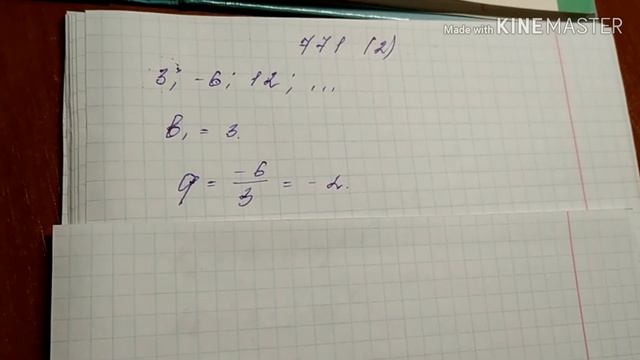 Made with KINEMASTER
771 (2)
3; -6; 12; ...
b₁ = 3.
q = -6/3 = -2.